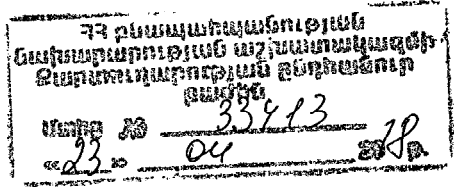 ՀՀ բնապահպանության
նախարարության աշխատակազմի
Քարտուղարության ընդհանուր
բաժին
Մտից № 33413
«23» 04 2018թ.